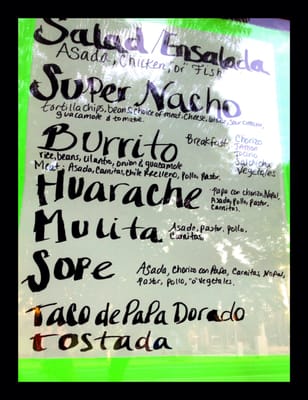 Salad/Ensalada
Asada, Chicken, "or" Fish
Super Nacho
tortilla chips, beans, choice of meat, cheese, sour cream,
guacamole & tomato.
Burrito
Breakfast: Chorizo
Jamon
Tocino
Salchicha
Vegetales
rice, beans, cilantro, onion & guacamole
Meat: Asada, Carnitas, chile Relleno, Pollo, Pastor.
Huarache
Papa con chorizo, Nopal,
Asada, Pollo, Pastor,
Carnitas.
Mulita
Asada, pastor, pollo,
Carnitas.
Sope
Asada, Chorizo con Papa, Carnitas Nopal,
Pastor, Pollo, "o" Vegetales.
Taco de Papa Dorado
tostada